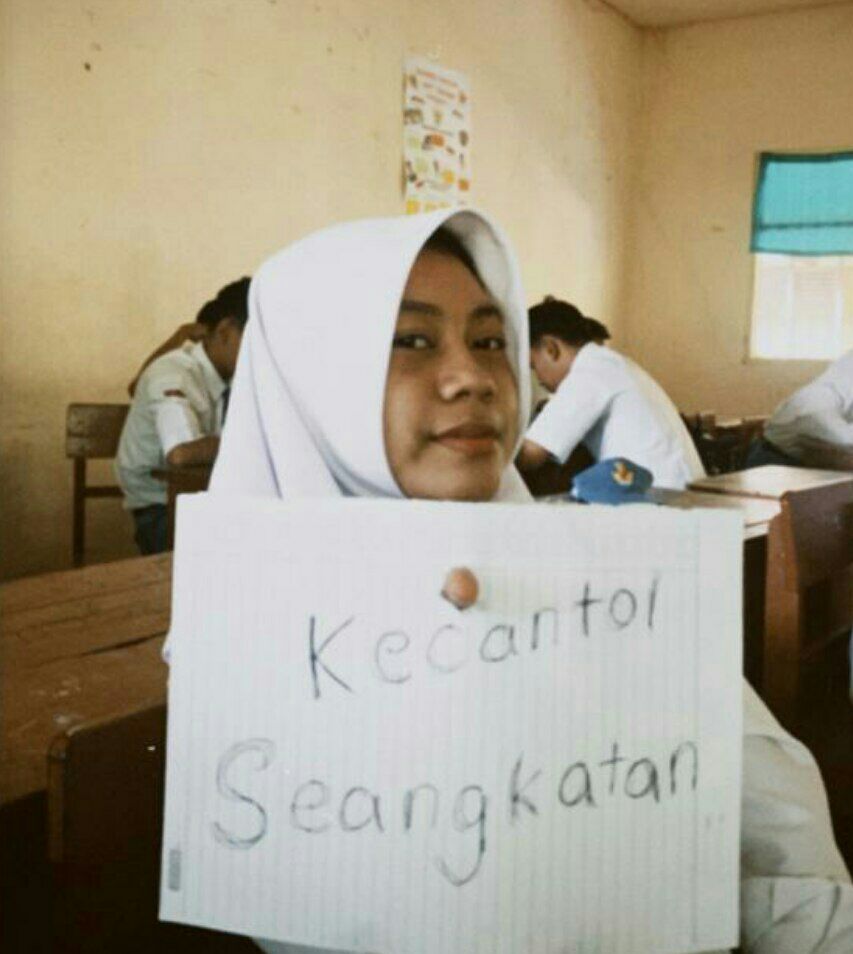 Kecantol
Seangkatan